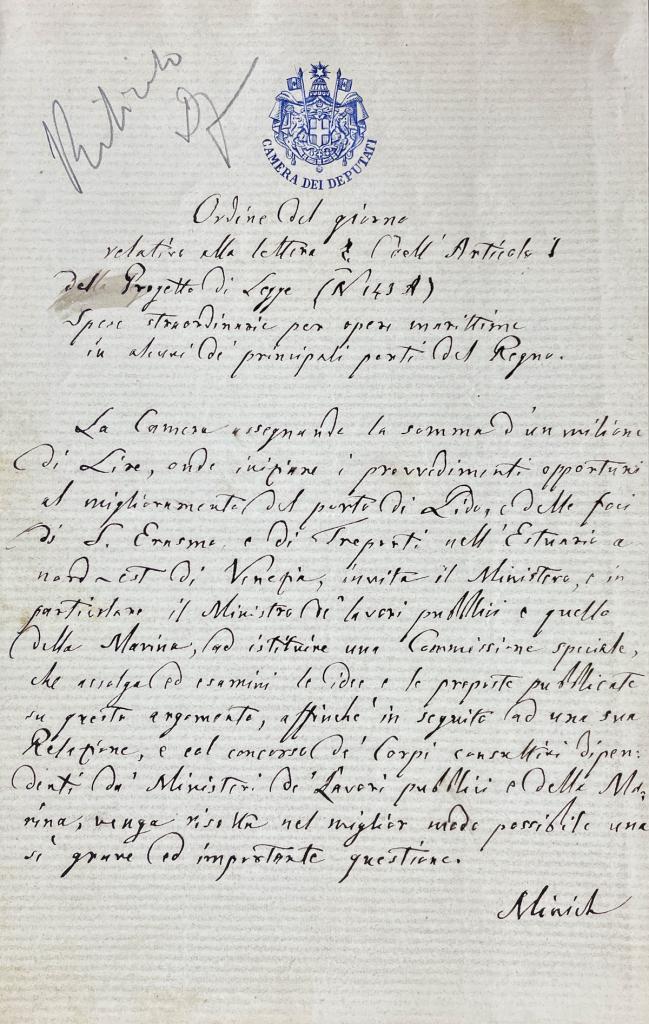 Ritirato
CAMERA DEI DEPUTATI
Ordine del giorno
relativo alla lettera dell'Articolo 1
della Progetto di Legge (N 143 A)
Spese straordinarie per opere marittime
in alcuni de' principali porti del Regno.
La Camera assegnando la somma d'un milione
di Lire, onde iniziare i provvedimenti opportuni
al miglioramento del porto di Lido, e delle foci
di S. Erasmo e di Treporti nell'Estuario a
nord-est di Venezia, invita il Ministero, e in
particolare il Ministro de' lavori pubblici e quello
della Marina, ad istituire una Commissione speciale,
che accolga ed esamini le idee e le proposte pubblicate
su questo argomento, affinchè in seguito ad una sua
Relazione, e col concorso de' Corpi consultivi dipen-
denti da' Ministeri de' Lavori pubblici e della Ma-
rina, venga risolta nel miglior modo possibile una
sì grave ed importante questione.
Minich